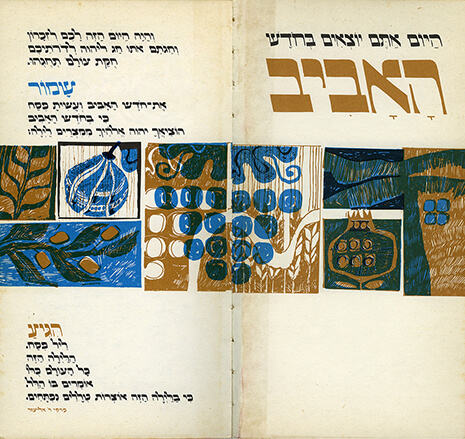 היום אתם יוצאים בחודש
הָאָבִיב
והיה היום הזה לכם לזכרון
וחגתם אתו חג ליהוה לדרתיכם
חקת עולם תחגהו.
שָׁמוֹר
את־חדש האביב ועשית פסח
כי בחדש האביב
הוציאך יהוה אלהיך ממצרים לילה:
הגיע
ליל פסח.
הלילה הזה
כל העולם כלו
אומרים בו הלל,
כי בלילה הזה אוצרות טללים נפתחים.
פרקי ר' אליעזר